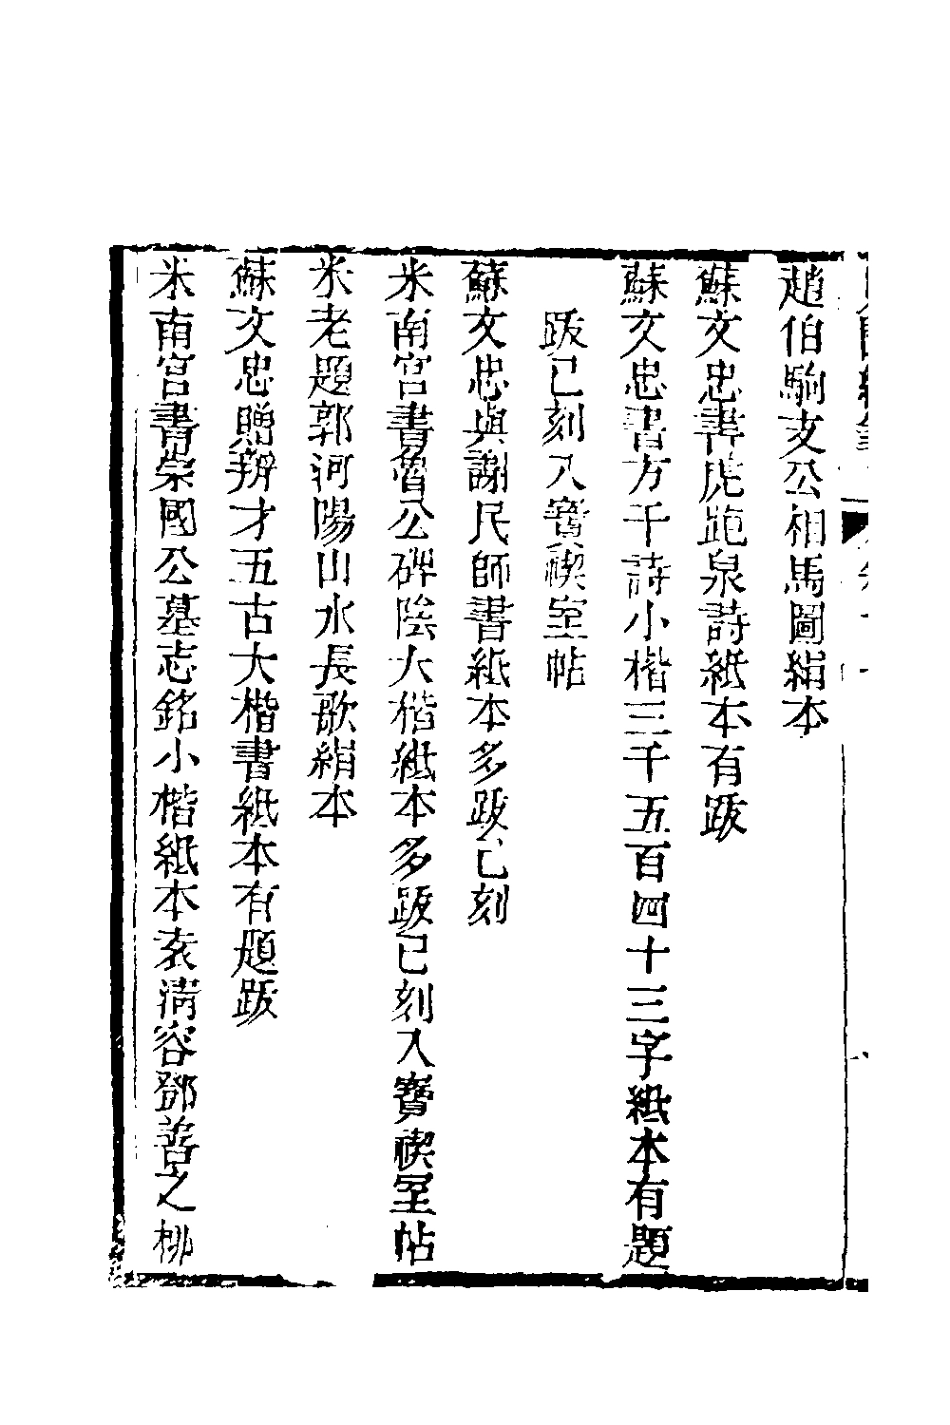 趙伯駒支公相馬圖絹本
蘇文忠書虎跑泉詩紙本有跋
蘇文忠書方千詩小楷三千五百四十三字紙本有題
跋已刻入寶禊室帖
蘇文忠與謝民師書紙本多跋已刻
米南宮書魯公碑陰大楷紙本多跋已刻入寶禊室帖
米老題郭河陽山水長歌絹本
蘇文忠贈辨才五古大楷書紙本有題跋
米南宮書崇國公墓志銘小楷紙本袁清容鄧善之柳